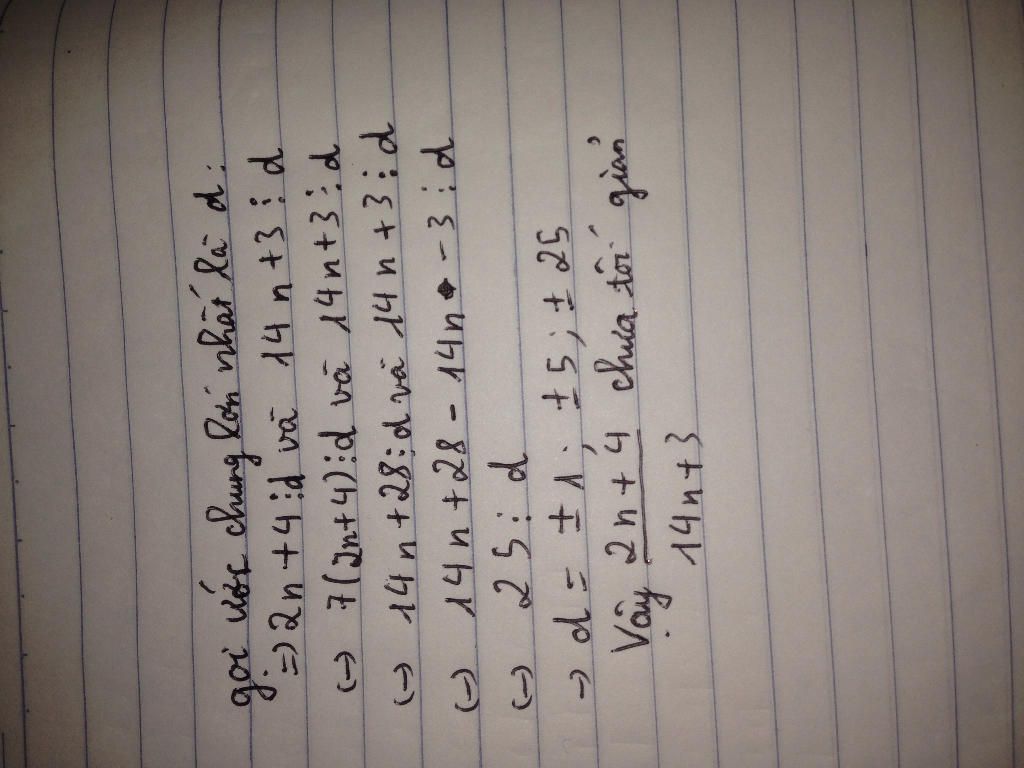 gọi ước chung lớn nhất là d.
=> 2n + 4 ⋮ d và 14 n + 3 ⋮ d
(→ 7(2n+4) ⋮ d và 14n + 3 ⋮ d
(→ 14n + 28 ⋮ d và 14n + 3 ⋮ d
(→ 14n + 28 - 14n - 3 ⋮ d
(→ 25 ⋮ d
→ d = ± 1 ; ± 5 ; ± 25
Vậy 2n + 4 chưa tối giản
14n + 3